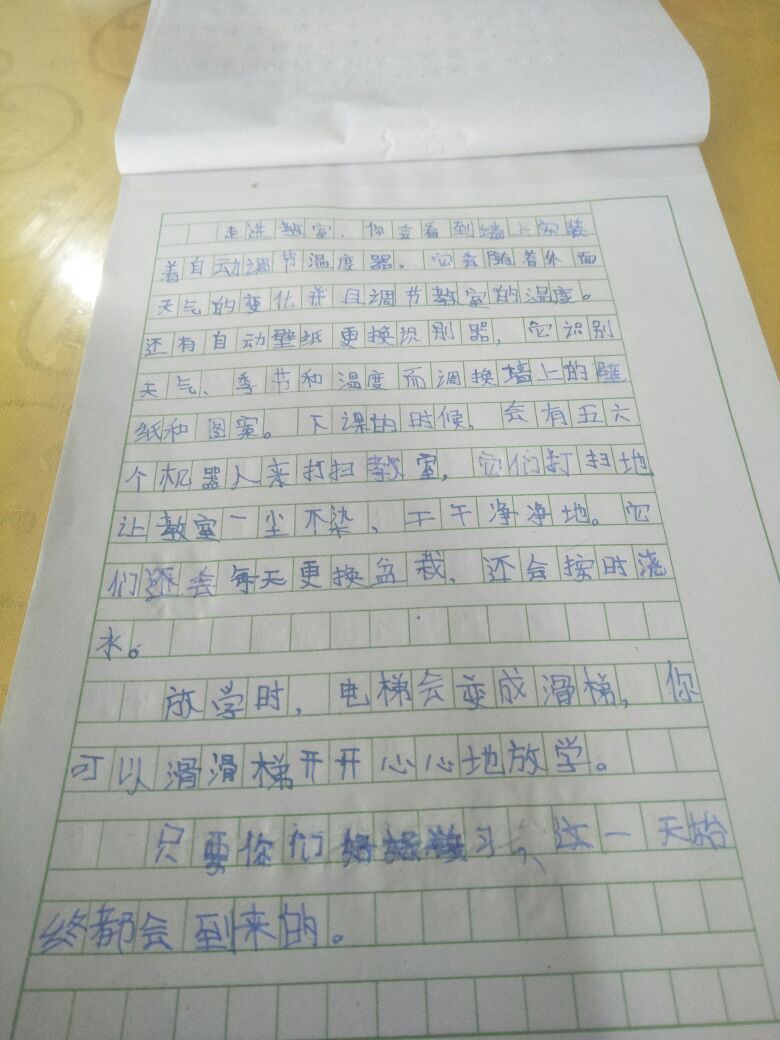 走进教室，你会看到墙上安装
着自动调节温度器，它会随着外面
天气的变化并且调节教室的温度。
还有自动壁纸更换识别器，它识别
天气、季节和温度而调换墙上的壁
纸和图案。下课的时候，会有五六
个机器人来打扫教室，它们打扫地
让教室一尘不染、干干净净地。它
们还会每天更换盆栽，还会按时浇
水。
放学时，电梯会变成滑梯，你
可以滑滑梯开开心心地放学。
只要你们好好学习，这一天始
终都会到来的。